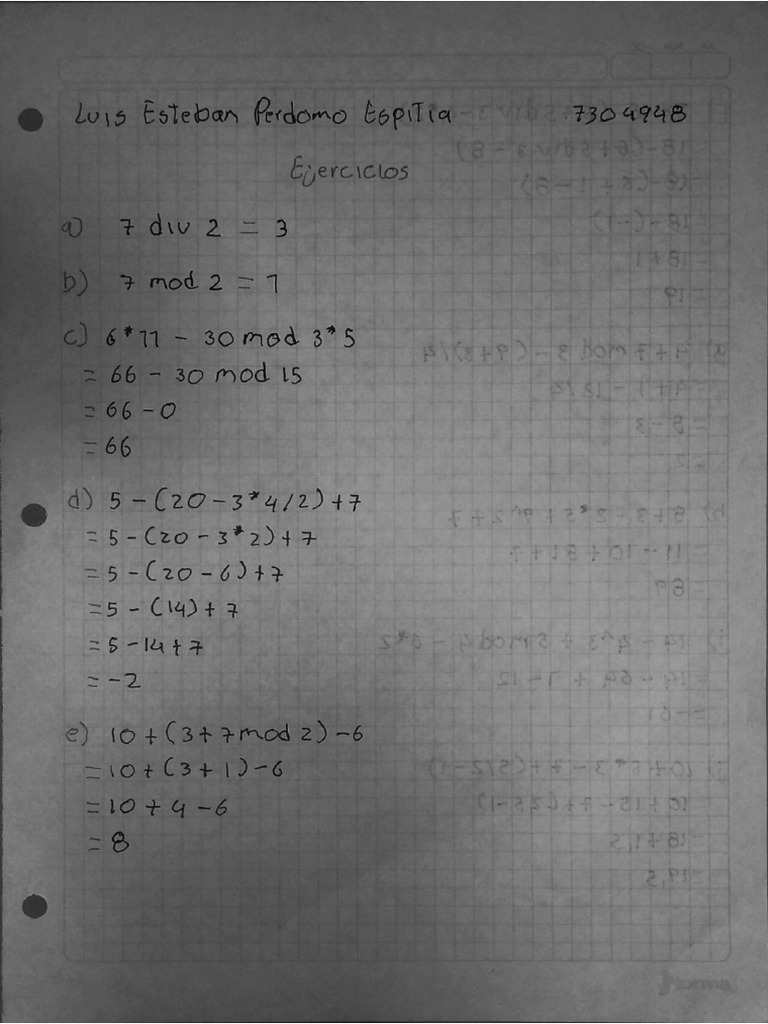 Luis Esteban Perdomo Espitia 7304948
Ejercicios
a) 7 div 2 = 3
b) 7 mod 2 = 1
c) 6*11 - 30 mod 3*5
= 66 - 30 mod 15
= 66 - 0
= 66
d) 5 - (20 - 3*4/2) + 7
= 5 - (20 - 3*2) + 7
= 5 - (20 - 6) + 7
= 5 - (14) + 7
= 5 - 14 + 7
= -2
e) 10 + (3 + 7 mod 2) - 6
= 10 + (3 + 1) - 6
= 10 + 4 - 6
= 8